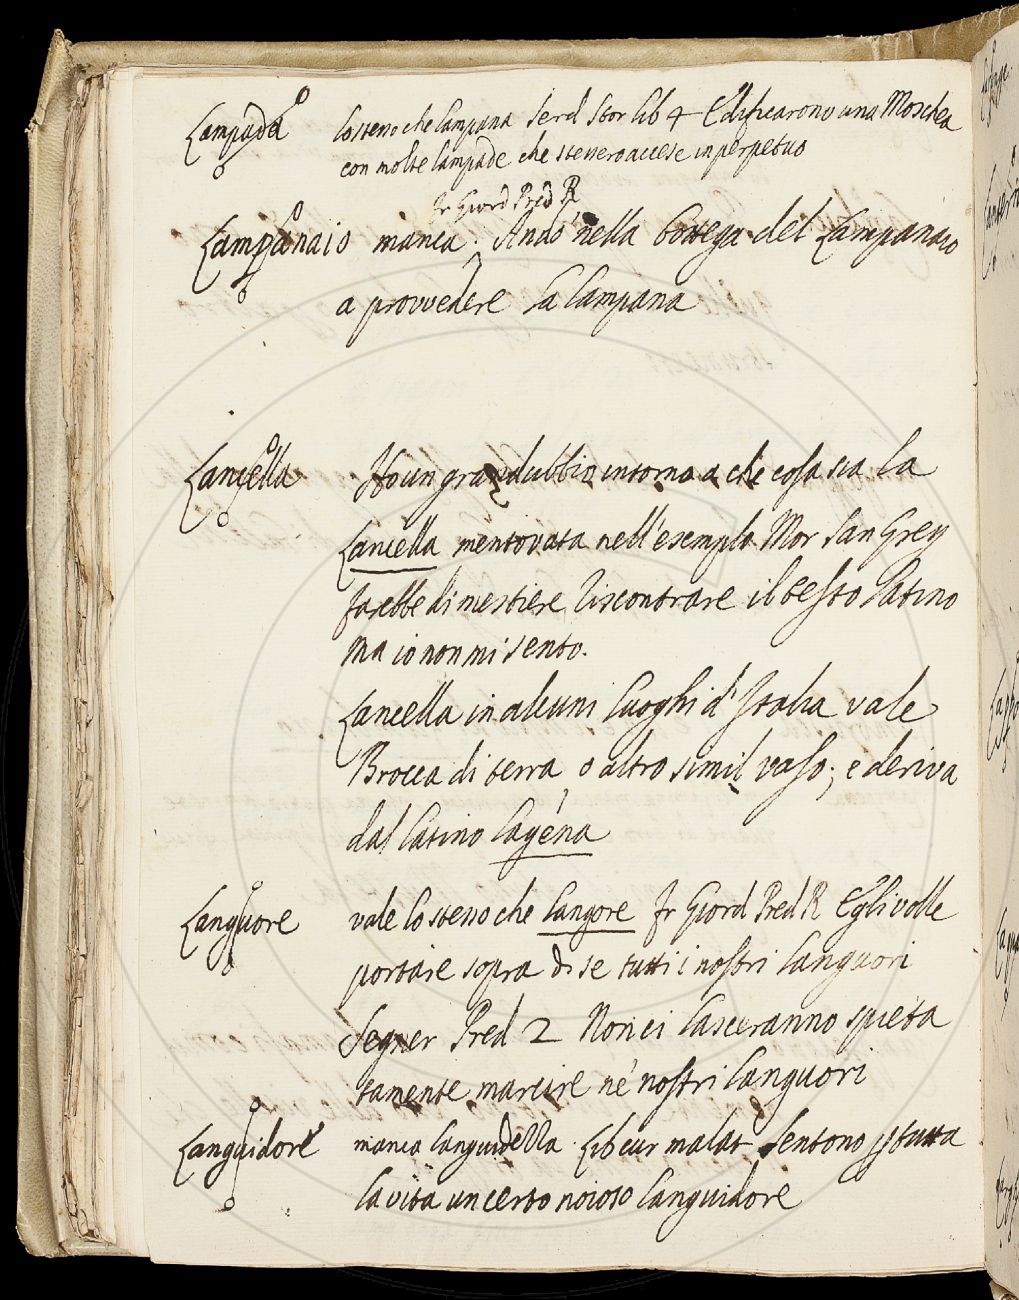 Lampada lo stesso che lampana Serd Stor lib 4 Edificarono una Moschea
con molte lampade che stessero accese in perpetuo
Fr Giord Pred R
Lampanaio manca. Andò nella bottega del Lampanaio
a provvedere la lampana
Lancella Ho un gran dubbio intorno a che cosa sia la
Lancella mentovata nell'esemplo Mor San Greg
sarebbe di mestiere riscontrare il testo latino
ma io non mi sento.
Lancella in alcuni luoghi d'Italia vale
Brocca di terra o altro simil vaso; e deriva
dal latino lagéna
Languore vale lo stesso che langore Fr Giord Pred R Egli volle
portare sopra di se tutti i nostri languori
Segner Pred 2 Non ci lasceranno spieta
tamente marcire né nostri languori
Languidore manca languidezza. Lib cur malat Sentono p tutta
la vita un certo noioso languidore